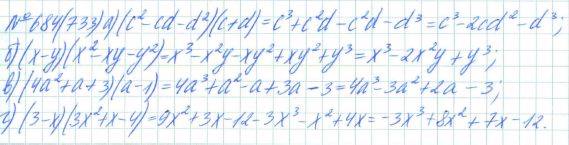 №684(733) а) (c²-cd-d²)(c+d)=c³+c²d-c²d-d³=c³-2cd²-d³;
б) (x-y)(x²-xy-y²)=x³-x²y-xy²+xy²+y³=x³-2x²y+y³;
в) (4a²+a+3)(a-1)=4a³+a²-a+3a-3=4a³-3a²+2a-3;
г) (3-x)(3x²+x-4)=9x²+3x-12-3x³-x²+4x=-3x³+8x²+7x-12.